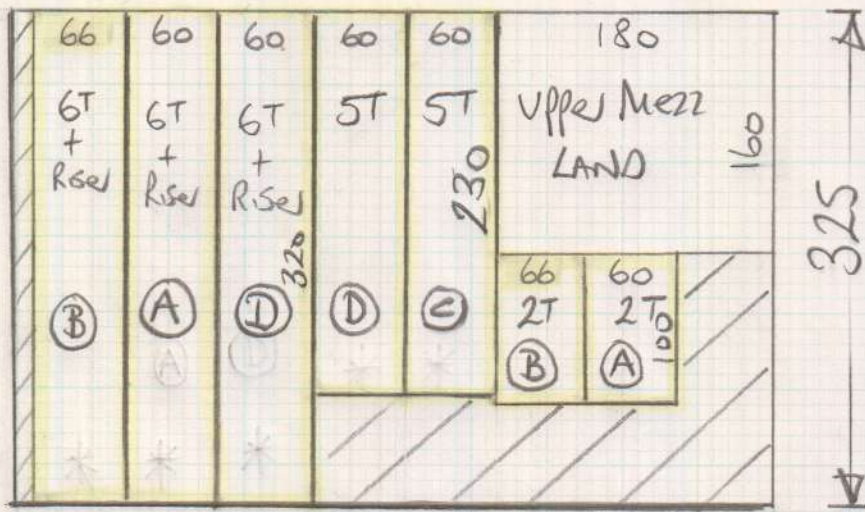 66
6T
+
Riser
B
60
6T
+
Riser
A
A
60
6T
+
Riser
320
D
D
60
5T
D
60
5T
230
C
180
Upper Mezz
LAND
160
66
2T
B
60
2T
100
A
325